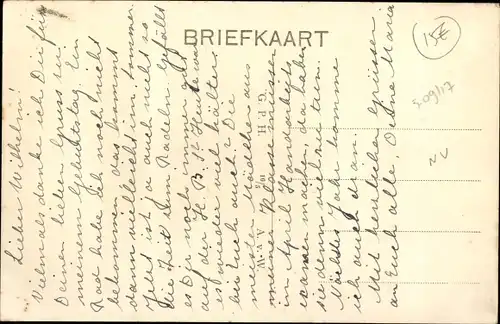 BRIEFKAART
Lieber Wilhelm!
Vielmals danke ich Dir für
Deinen lieben Gruss zu
meinem Geburtstag. Ein
Rad habe ich noch nicht
bekommen, das kommt
dann vielleicht im Sommer.
Jetzt ist ja auch nicht so
die Zeit zum Radeln. Gefällt
es Dir noch immer gut
auf der H. B. St. Heute
es wieder viel kälter.
bei Euch auch? Die
meisten Mädchen aus
meiner Klasse müssen
im April Handarbeits
examen machen, da haben
sie denn viel zu tun.
Nächstes Jahr komme
ich auch dran.
Mit herzlichen Grüssen
an Euch alle, Deine Maria
15€
309/17